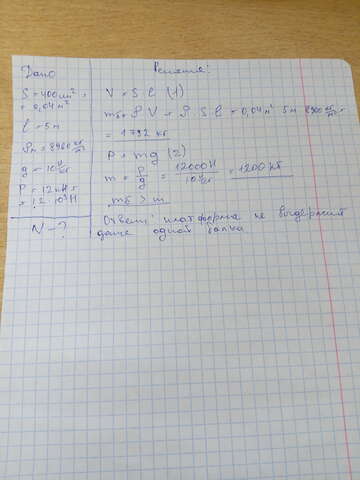 Дано
Решение:
S = 400 см² =
= 0,04 м²
l = 5 м
ρм = 8960 кг/м³
g = 10 Н/кг
P = 12 кН =
= 1,2 · 10⁴ Н
N - ?
V = S l (1)
mб = ρ V = ρ S l = 0,04 м² 5 м 8960 кг/м³ =
= 1792 кг
P = mg (2)
m = P/g = 12000 Н / 10 Н/кг = 1200 кг
mб > m
Ответ: платформа не выдержит
даже одной балки